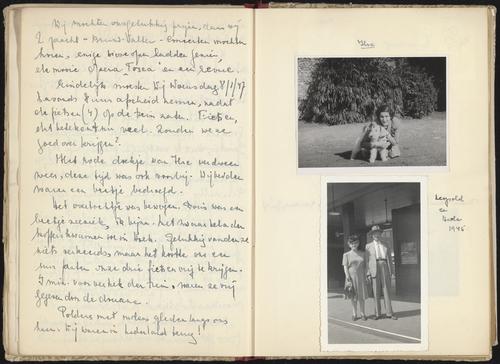 Wij mochten ons gelukkig prijzen, dan wij
2 pracht - Bruno Walter - concerten mochten
horen, enige bioscopen hadden gezien,
de mooie opera "Tosca" en een revue.
Eindelijk moesten wij Woensdag 8/1/47
's avonds 8 uur afscheid nemen, nadat
de fietsen (4) op de trein zaten. Fietsen,
dat betekent nu veel. Zouden we ze
goed over krijgen?
Het rode doekje van Ilse verdween
weer, deze tijd was ook voorbij. Wij beiden
waren een beetje bedroefd.
Het overtochtje was bewogen. Doris was een
beetje zeeziek, ik bijna. Het zware beladen
koffers kwamen we in Hoek. Gelukkig vonden ze
niets verkeerds maar het kostte ons een
uur praten onze drie fietsen vrij te krijgen.
1 min. voor vertrek der trein, waren ze vrij
gegeven door de douane.
Polders met molens gleden langs ons
heen. Wij waren in Nederland terug!
Ilse
Leopold
en
1946